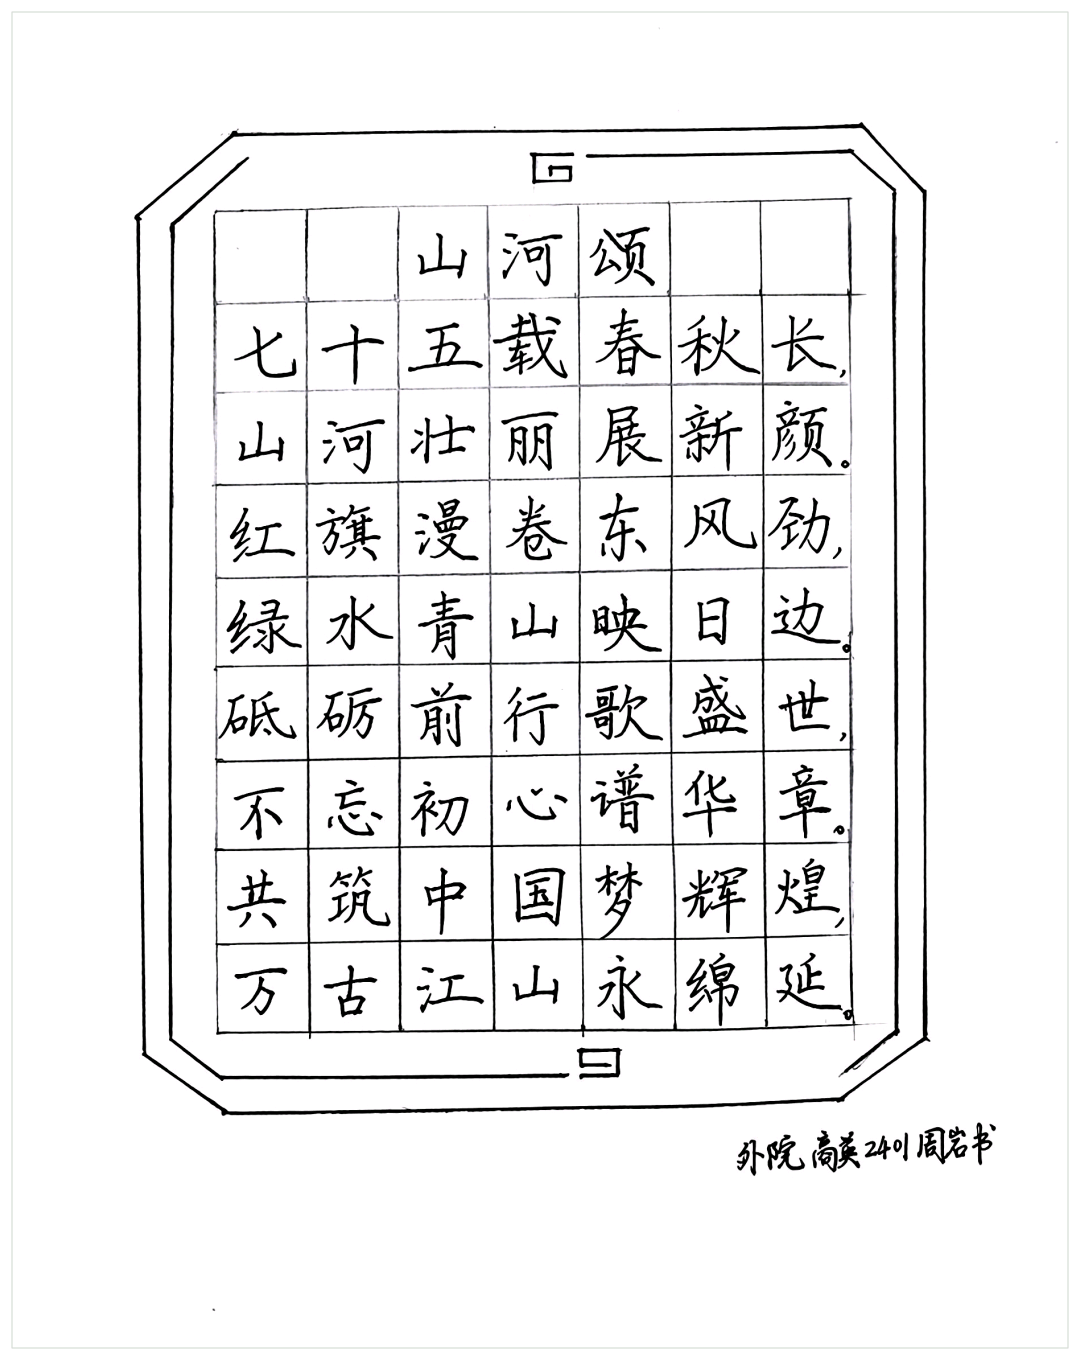 山河颂
七十五载春秋长,
山河壮丽展新颜。
红旗漫卷东风劲,
绿水青山映日边。
砥砺前行歌盛世,
不忘初心谱华章。
共筑中国梦辉煌,
万古江山永绵延。
外院 高英2401周岩书